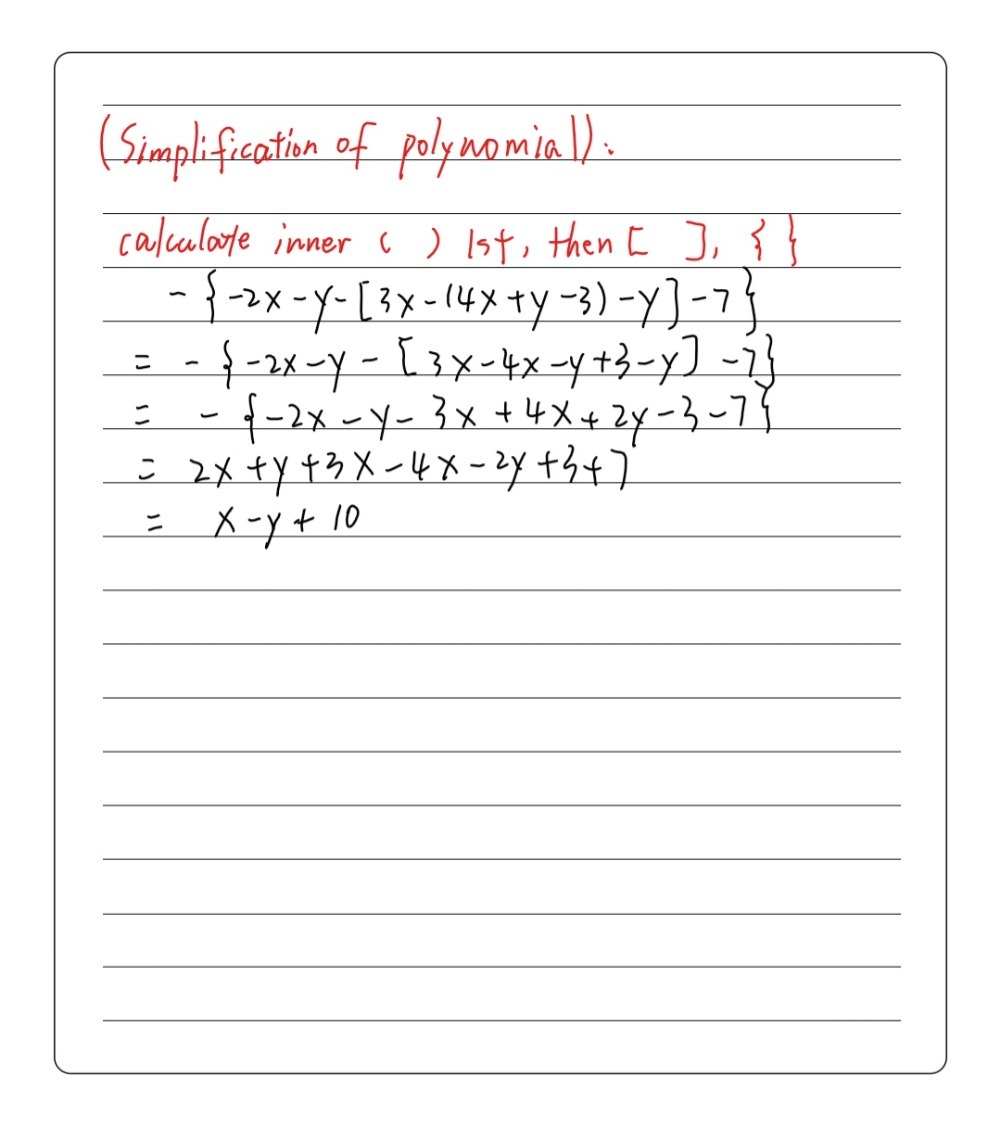 (Simplification of polynomial):
calculate inner ( ) 1st, then [ ], { }
- {-2x-y-[3x-(4x+y-3)-y]-7}
= - {-2x-y-[3x-4x-y+3-y]-7}
= - {-2x-y-3x+4x+2y-3-7}
= 2x+y+3x-4x-2y+3+7
= x-y+10